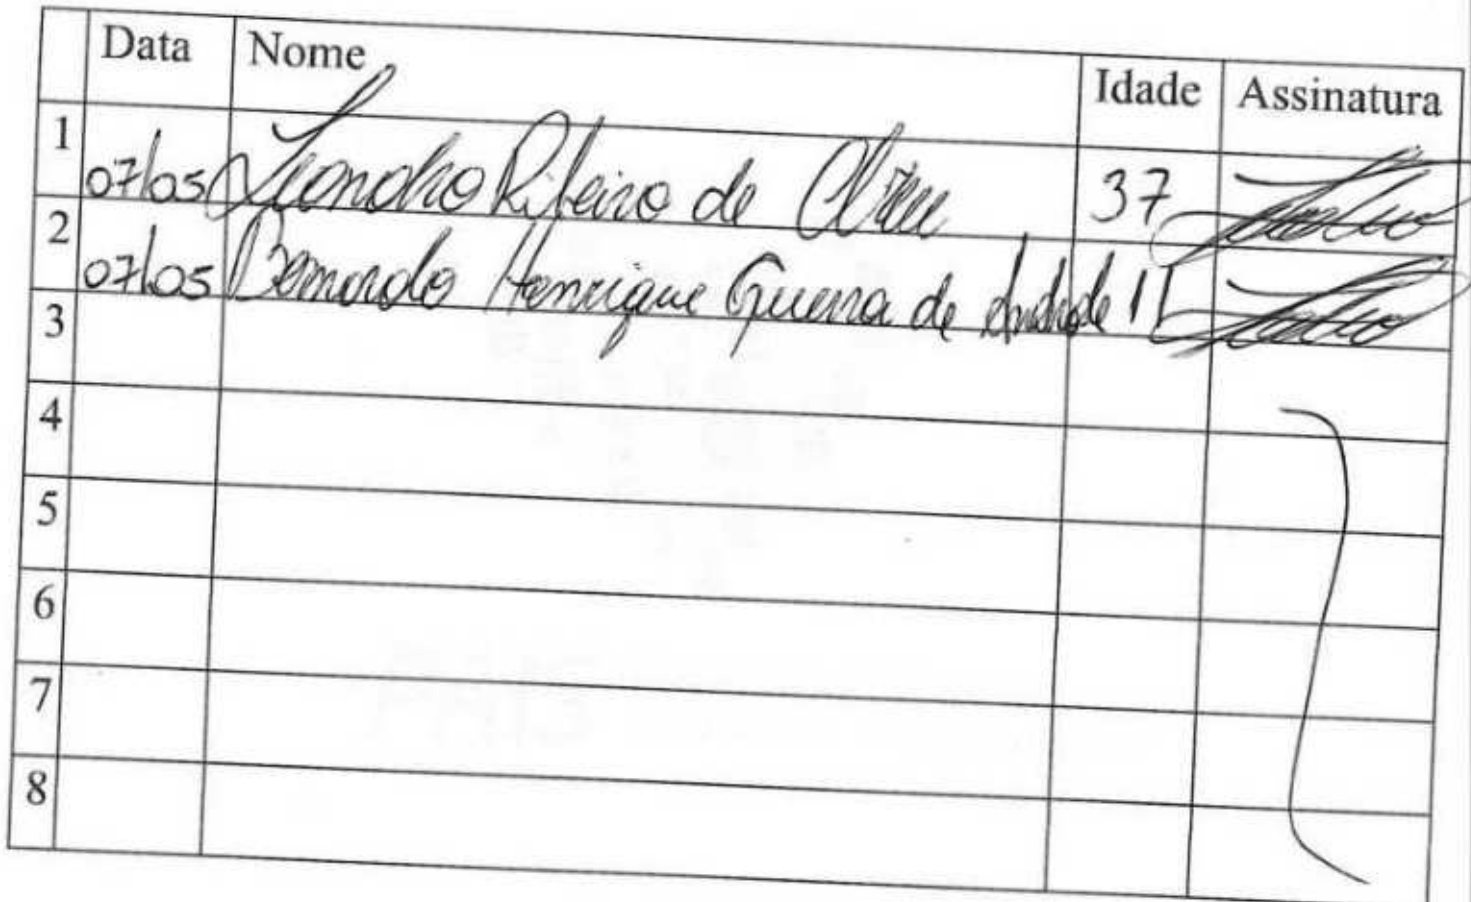 Data Nome Idade Assinatura
1 07/05 Leandro Ribeiro de 37
2 07/05 Bernardo Henrique Guerra de Andrade 11
3
4
5
6
7
8